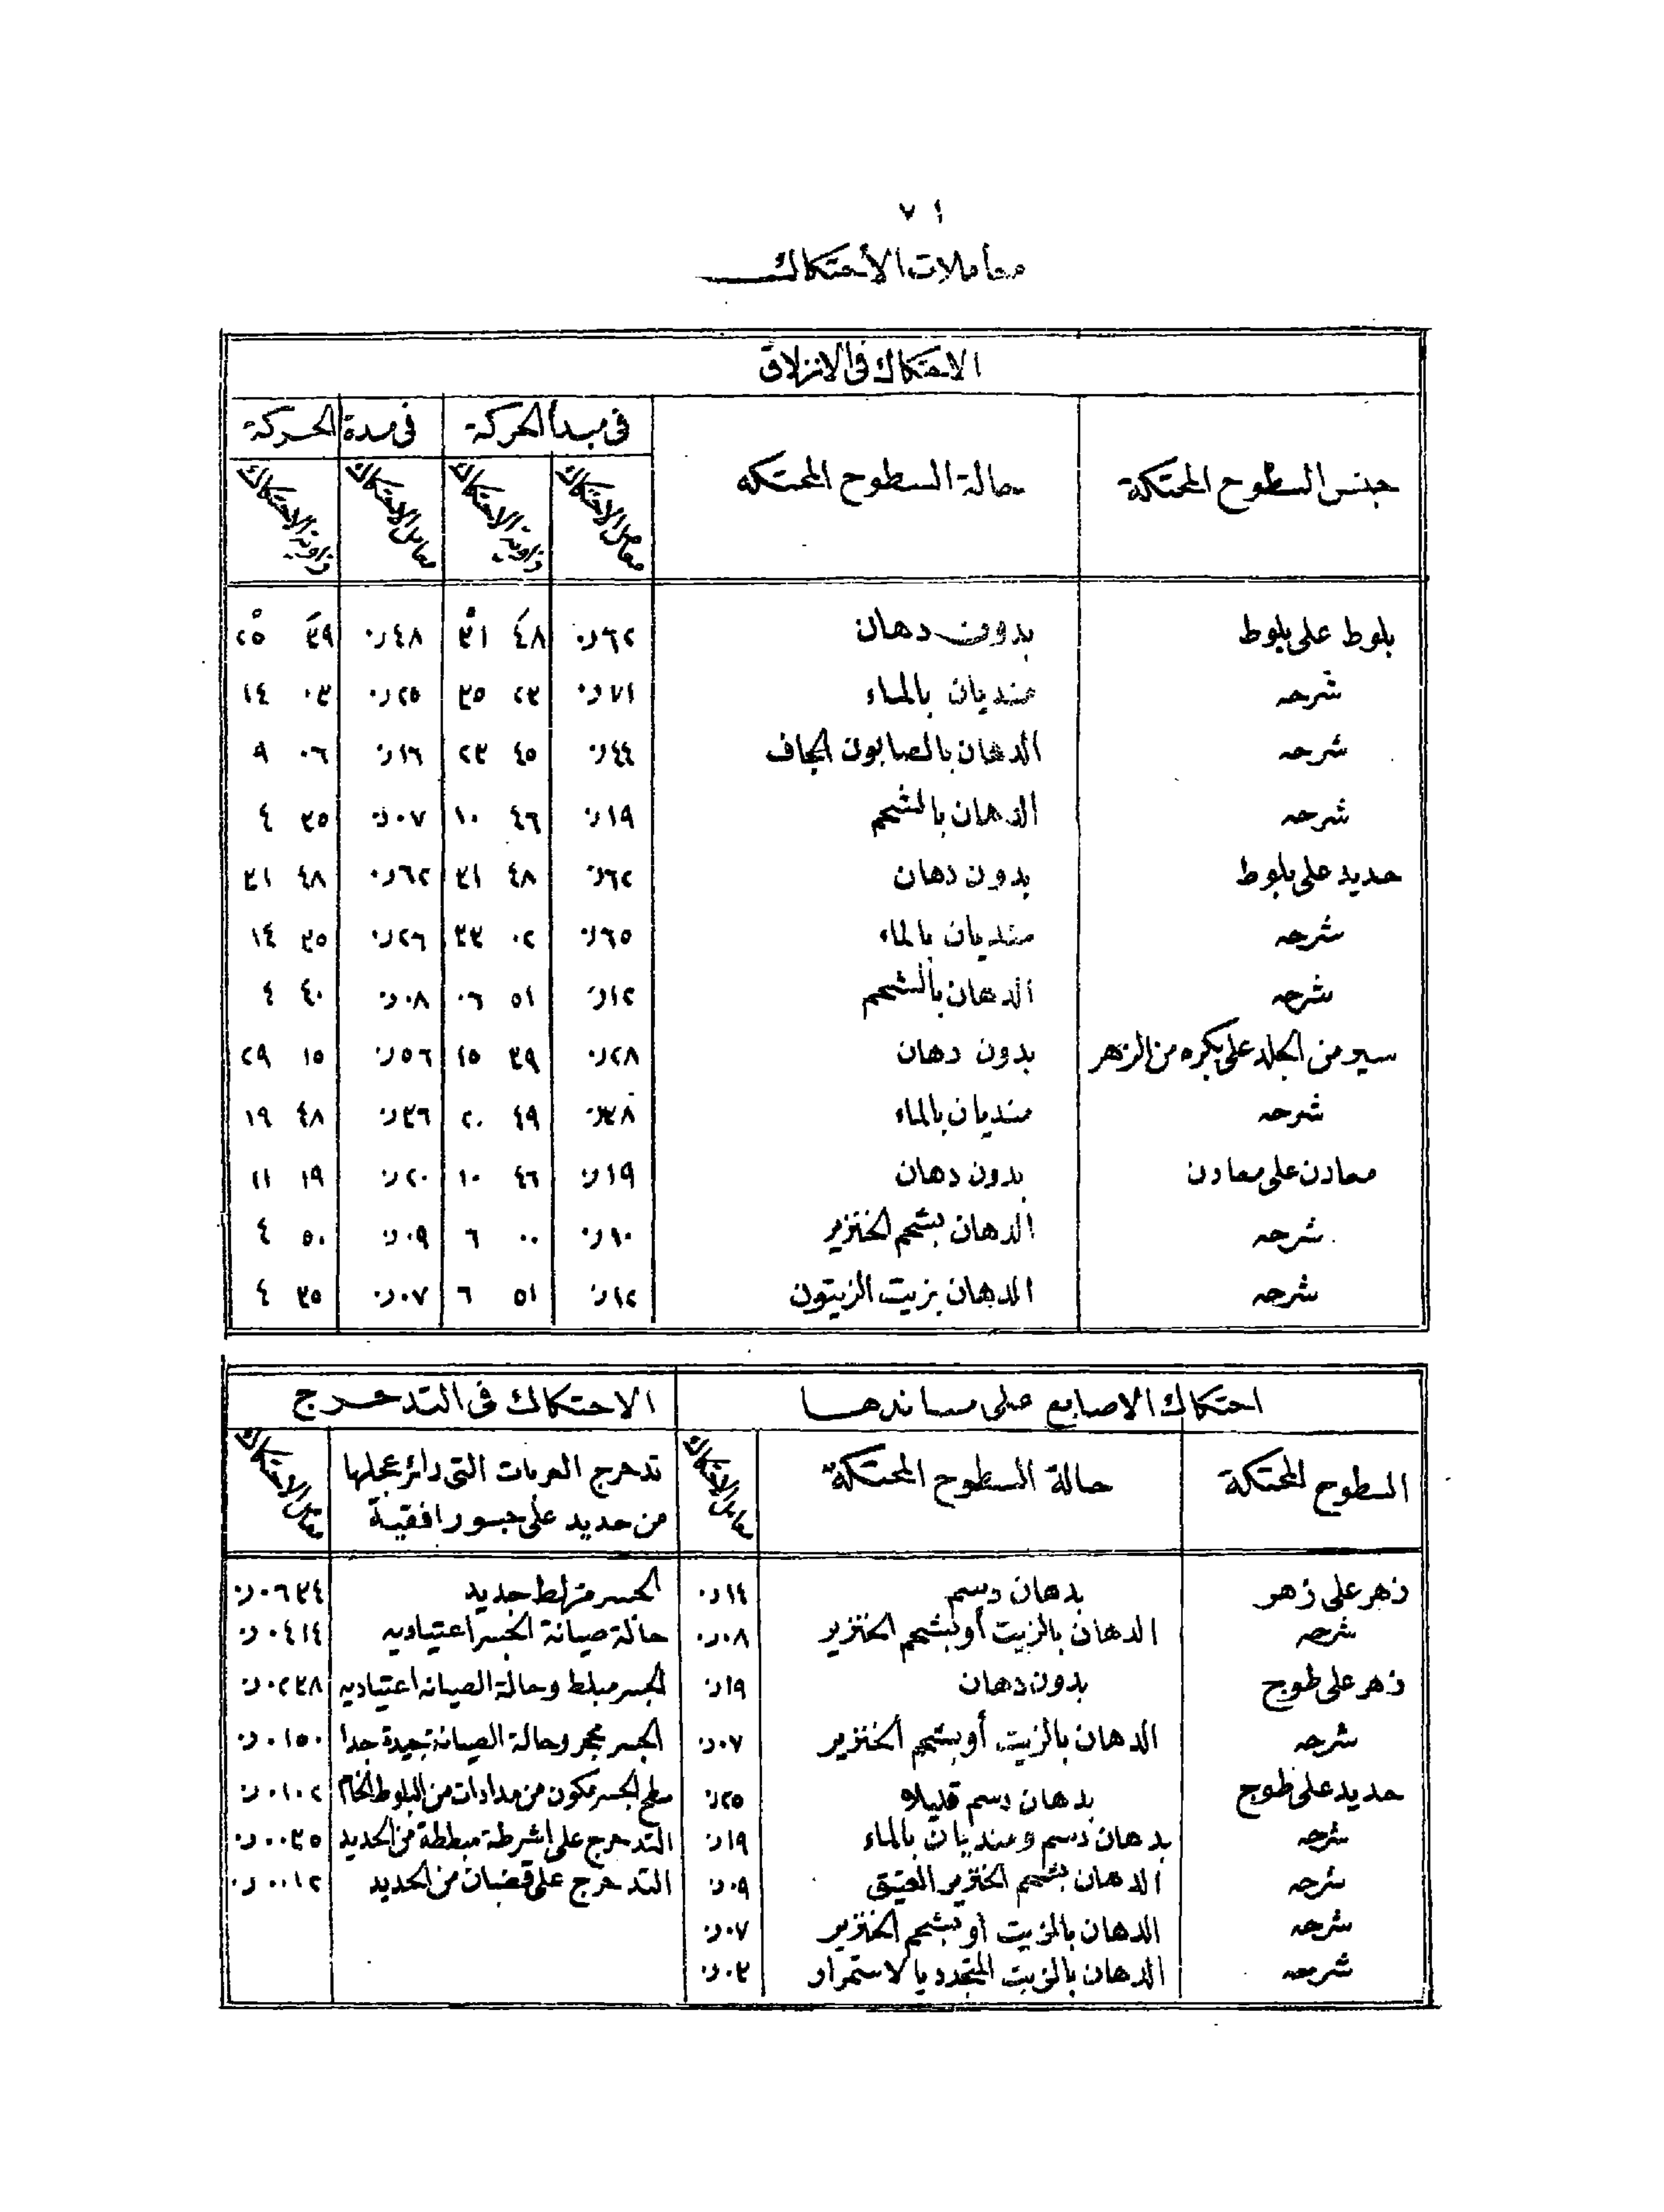 ٧١
معاملات الأحتكاك
الاحتكاك فى الانزلاق
جنس السطوح المحتكة | حالة السطوح المحتكه | فى مبدأ الحركة | فى مدة الحركة
معامل الاحتكاك | زاوية الاحتكاك | معامل الاحتكاك | زاوية الاحتكاك
بلوط على بلوط | بدون دهان | ٦٢ر٠ | ٤٨َ ٣١ْ | ٤٨ر٠ | ٣٩َ ٢٥ْ
شرحه | منديان بالماء | ٧١ر٠ | ٢٣ ٣٥ | ٢٥ر٠ | ٠٣ ١٤
شرحه | الدهان بالصابون الجاف | ٤٤ر٠ | ٤٥ ٢٣ | ١٦ر٠ | ٠٦ ٩
شرحه | الدهان بالشحم | ١٩ر٠ | ٤٦ ١٠ | ٠٧ر٠ | ٣٥ ٤
حديد على بلوط | بدون دهان | ٦٢ر٠ | ٤٨ ٣١ | ٦٢ر٠ | ٤٨ ٣١
شرحه | منديان بالماء | ٦٥ر٠ | ٠٢ ٣٣ | ٢٦ر٠ | ٣٥ ١٤
شرحه | الدهان بالشحم | ١٢ر٠ | ٥١ ٠٦ | ٠٨ر٠ | ٤٠ ٤
سير من الجلد على بكره من الزهر | بدون دهان | ٢٨ر٠ | ٣٩ ١٥ | ٥٦ر٠ | ١٥ ٢٩
شرحه | منديان بالماء | ٣٨ر٠ | ٤٩ ٢٠ | ٣٦ر٠ | ٤٨ ١٩
معادن على معادن | بدون دهان | ١٩ر٠ | ٤٦ ١٠ | ٢٠ر٠ | ١٩ ١١
شرحه | الدهان بشحم الخنزير | ١٠ر٠ | ٠٠ ٦ | ٠٩ر٠ | ٥٠ ٤
شرحه | الدهان بزيت الزيتون | ١٢ر٠ | ٥١ ٦ | ٠٧ر٠ | ٣٥ ٤
احتكاك الاصابع على مساندها | الاحتكاك فى التدحرج
السطوح المحتكة | حالة السطوح المحتكة | معامل الاحتكاك | تدحرج العربات التى دائر عجلها | معامل الاحتكاك
من حديد على جسور افقية
زهر على زهر | بدهان دسم | ١٤ر٠ | الجسر مزلط جديد | ٠٦٣٤ر٠
شرحه | الدهان بالزيت أو بشحم الخنزير | ٠٨ر٠ | حالة صيانة الجسر اعتياديه | ٠٤١٤ر٠
زهر على طوج | بدون دهان | ١٩ر٠ | الجسر مبلط وحالة الصيانه اعتياديه | ٠٢٣٨ر٠
شرحه | الدهان بالزيت أو بشحم الخنزير | ٠٧ر٠ | الجسر محجر وحالة الصيانة جيدة جدا | ٠١٥٠ر٠
حديد على طوج | بدهان دسم قليلا | ٢٥ر٠ | سطح الجسر مكون من مدادات من البلوط الخام | ٠١٠٢ر٠
شرحه | بدهان دسم ومنديان بالماء | ١٩ر٠ | التدحرج على اشرطة مبططة من الحديد | ٠٠٣٥ر٠
شرحه | الدهان بشحم الخنزير العتيق | ٠٩ر٠ | التدحرج على قضبان من الحديد | ٠٠١٢ر٠
شرحه | الدهان بالزيت أو بشحم الخنزير | ٠٧ر٠
شرحه | الدهان بالزيت المتجدد بالاستمرار | ٠٣ر٠